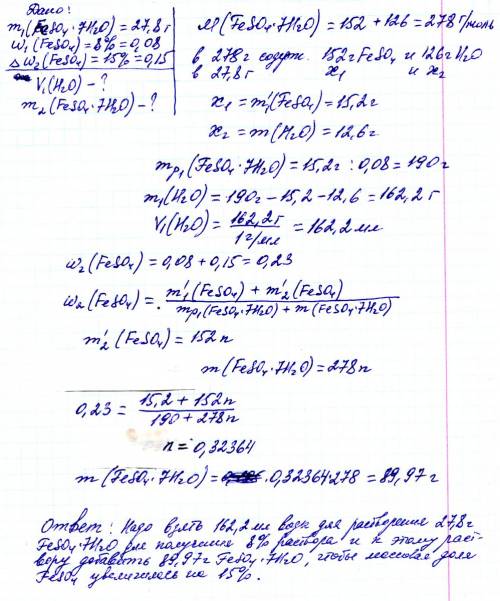 Дано:
m₁(FeSO₄·7H₂O)=27,8г
ω₁(FeSO₄)=8%=0,08
Δω₂(FeSO₄)=15%=0,15
V₁(H₂O)-?
m₂(FeSO₄·7H₂O)-?
M(FeSO₄·7H₂O)=152+126=278г/моль
в 278г содерж. 152г FeSO₄ и 126г H₂O
в 27,8г x₁ и x₂
x₁=m₁'(FeSO₄)=15,2г
x₂=m(H₂O)=12,6г
mр₁(FeSO₄·7H₂O)=15,2г:0,08=190г
m₁(H₂O)=190г-15,2-12,6=162,2г
V₁(H₂O)=162,2г/1г/мл=162,2мл
ω₂(FeSO₄)=0,08+0,15=0,23
ω₂(FeSO₄)=m₁'(FeSO₄)+m₂'(FeSO₄)/mр₁(FeSO₄·7H₂O)+m(FeSO₄·7H₂O)
m₂'(FeSO₄)=152n
m(FeSO₄·7H₂O)=278n
0,23=15,2+152n/190+278n
n=0,32364
m(FeSO₄·7H₂O)=0,32364·278=89,97г
Ответ: Надо взять 162,2мл воды для растворения 27,8г
FeSO₄·7H₂O для получения 8% раствора и к этому раст-
вору добавить 89,97г FeSO₄·7H₂O, чтобы массовая доля
FeSO₄ увеличилась на 15%.